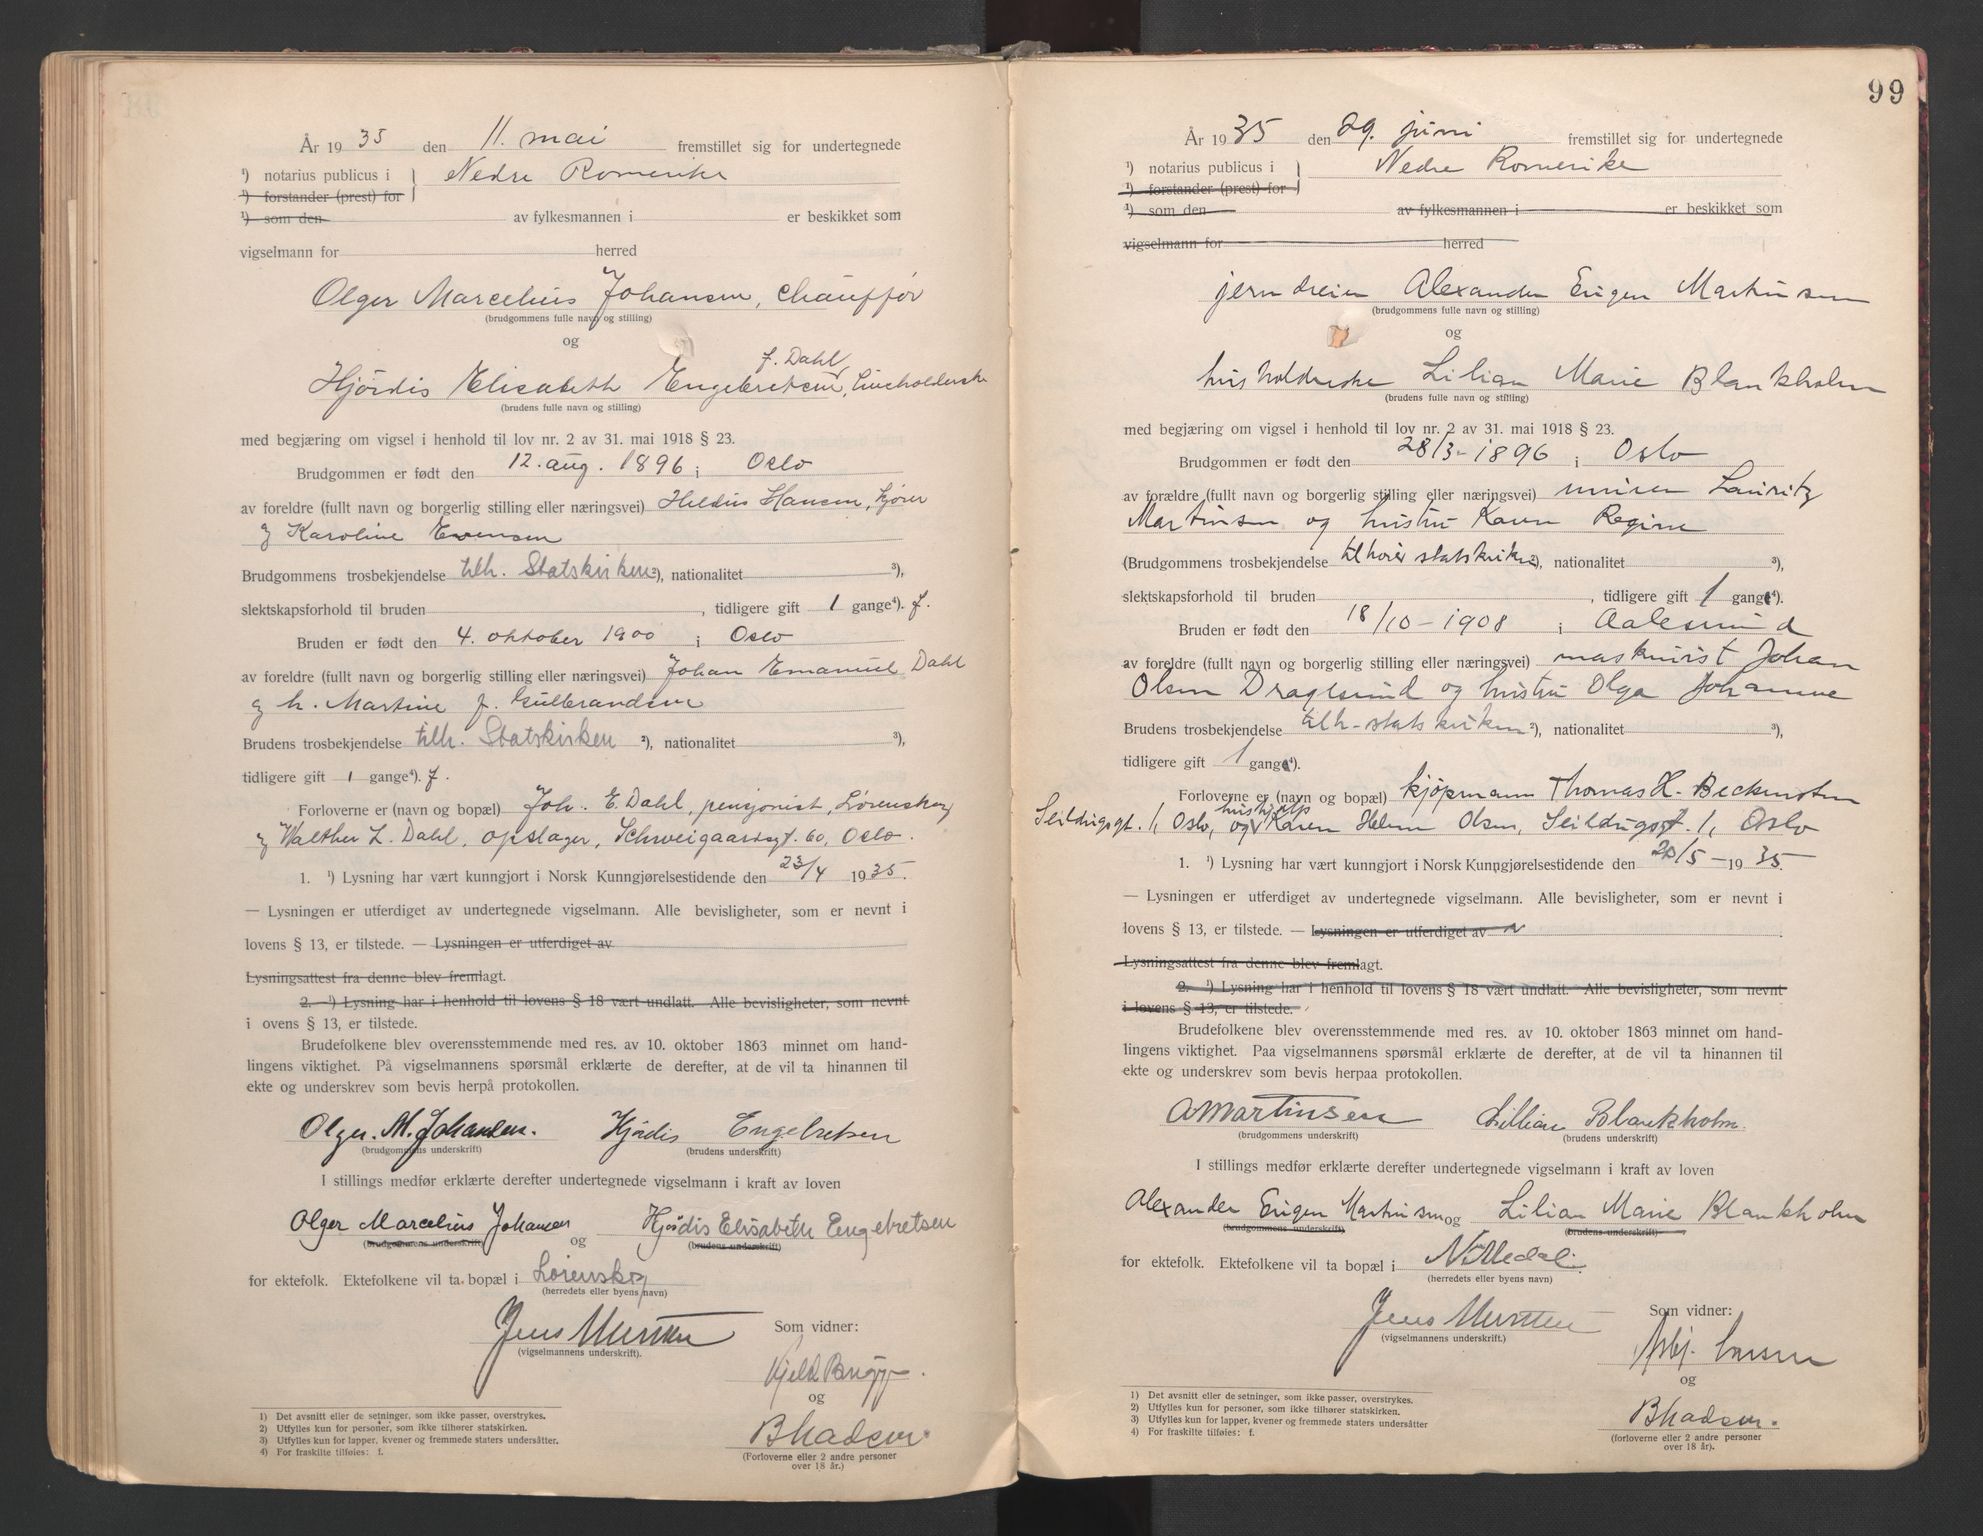 År 1935 den 11. mai fremstillet sig for undertegnede
¹) notarius publicus i } Nedre Romerike
¹) forstander (prest) for
¹) som den av fylkesmannen i er beskikket som
vigselmann for herred
Olger Marcelius Johansen, chauffør
(brudgommens fulle navn og stilling)
og
f. Dahl
Hjördis Elisabeth Engebretsen,
(brudens fulle navn og stilling)
med begjæring om vigsel i henhold til lov nr. 2 av 31. mai 1918 § 23.
Brudgommen er født den 12. aug. 1896 i Oslo
av foreldre (fullt navn og borgerlig stilling eller næringsvei) Hansen, kjører
og Karoline Evensen
Brudgommens trosbekjendelse tilh. Statskirken ²), nationalitet ³),
slektskapsforhold til bruden , tidligere gift 1 gange⁴). f.
Bruden er født den 4. oktober 1900 i Oslo
av foreldre (fullt navn og borgerlig stilling eller næringsvei) Johan Emanuel Dahl
og h. Martine f. Gulbrandsen
Brudens trosbekjendelse tilh. Statskirken ²), nationalitet ³),
tidligere gift 1 gange⁴). f.
Forloverne er (navn og bopæl) Joh. E. Dahl, pensjonist, Lørenskog
og Walther L. Dahl, opslager, Schweigaardsgt. 60, Oslo.
1. ¹) Lysning har vært kunngjort i Norsk Kunngjørelsestidende den 23/4 1935.
— Lysningen er utferdiget av undertegnede vigselmann. Alle bevisligheter, som er nevnt i
lovens § 13, er tilstede. — Lysningen er utferdiget av
Lysningsattest fra denne blev fremlagt.
2. ¹) Lysning har i henhold til lovens § 18 vært undlatt. Alle bevisligheter, som nevnt
i ovens § 13, er tilstede.
Brudefolkene blev overensstemmende med res. av 10. oktober 1863 minnet om hand-
lingens viktighet. På vigselmannens spørsmål erklærte de derefter, at de vil ta hinannen til
ekte og underskrev som bevis herpå protokollen.
Olger. M. Johansen. Hjördis Engebretsen
(brudgommens underskrift) (brudens underskrift)
I stillings medfør erklærte derefter undertegnede vigselmann i kraft av loven
Olger Marcelius Johansen og Hjördis Elisabeth Engebretsen
(brudgommens underskrift) (brudens underskrift)
for ektefolk. Ektefolkene vil ta bopæl i Lørenskog
(herredets eller byens navn)
Jens
(vigselmannens underskrift).
Som vidner:
og
(Forloverne eller 2 andre personer
over 18 år.)
1) Det avsnitt eller de setninger, som ikke passer, overstrykes.
2) Utfylles kun for personer, som ikke tilhører statskirken.
3) Utfylles kun for lapper, kvener og fremmede staters undersåtter.
4) For fraskilte tilføies: f.
99
År 1935 den 29. juni fremstillet sig for undertegnede
¹) notarius publicus i } Nedre Romerike
¹) forstander (prest) for
¹) som den av fylkesmannen i er beskikket som
vigselmann for herred
jerndreier Alexander Eugen Martinsen
(brudgommens fulle navn og stilling)
og
husholderske Lilian Marie Blankholm
(brudens fulle navn og stilling)
med begjæring om vigsel i henhold til lov nr. 2 av 31. mai 1918 § 23.
Brudgommen er født den 28/3-1896 i Oslo
av forældre (fullt navn og borgerlig stilling eller næringsvei) murer Lauritz
Martinsen og hustru Karen Regine
(Brudgommens trosbekjendelse tilhører statskirken ²), nationalitet ³),
slektskapsforhold til bruden , tidligere gift 1 gange⁴).
Bruden er født den 18/10-1908 i Aalesund
av foreldre (fullt navn og borgerlig stilling eller næringsvei) maskinist Johan
Olsen Draglsund og hustru Olga Johanne
Brudens trosbekjendelse tilh. statskirken ²), nationalitet ³),
tidligere gift 1 gange⁴).
Forloverne er (navn og bopæl) kjøpmann Thomas H.
hushjelp
Seildugsgt. 1, Oslo, og Karen Helene Olsen, Seildugsgt. 1, Oslo
1. ¹) Lysning har vært kunngjort i Norsk Kunngjørelsestidende den 20/5-1935.
— Lysningen er utferdiget av undertegnede vigselmann. Alle bevisligheter, som er nevnt i
lovens § 13, er tilstede. — Lysningen er utferdiget av
Lysningsattest fra denne blev fremlagt.
2. ¹) Lysning har i henhold til lovens § 18 vært undlatt. Alle bevisligheter, som nevnt
i lovens § 13, er tilstede.
Brudefolkene blev overensstemmende med res. av 10. oktober 1863 minnet om hand-
lingens viktighet. Paa vigselmannens spørsmål erklærte de derefter, at de vil ta hinannen til
ekte og underskrev som bevis herpaa protokollen.
AMartinsen Lillian Blankholm.
(brudgommens underskrift) (brudens underskrift)
I stillings medfør erklærte derefter undertegnede vigselmann i kraft av loven
Alexander Eugen Martinsen og Lilian Marie Blankholm
(brudgommens underskrift) (brudens underskrift)
for ektefolk. Ektefolkene vil ta bopæl i Nittedal.
(herredets eller byens navn)
Jens
(vigselmannens underskrift.)
Som vidner:
Asbj. Larsen
og
(forloverne eller 2 andre personer
over 18 år).
1) Det avsnitt eller de setninger, som ikke passer, overstrykes.
2) Utfylles kun for personer, som ikke tilhører statskirken.
3) Utfylles kun for lapper, kvener og fremmede staters undersåtter
4) For fraskilte tilføies: f.